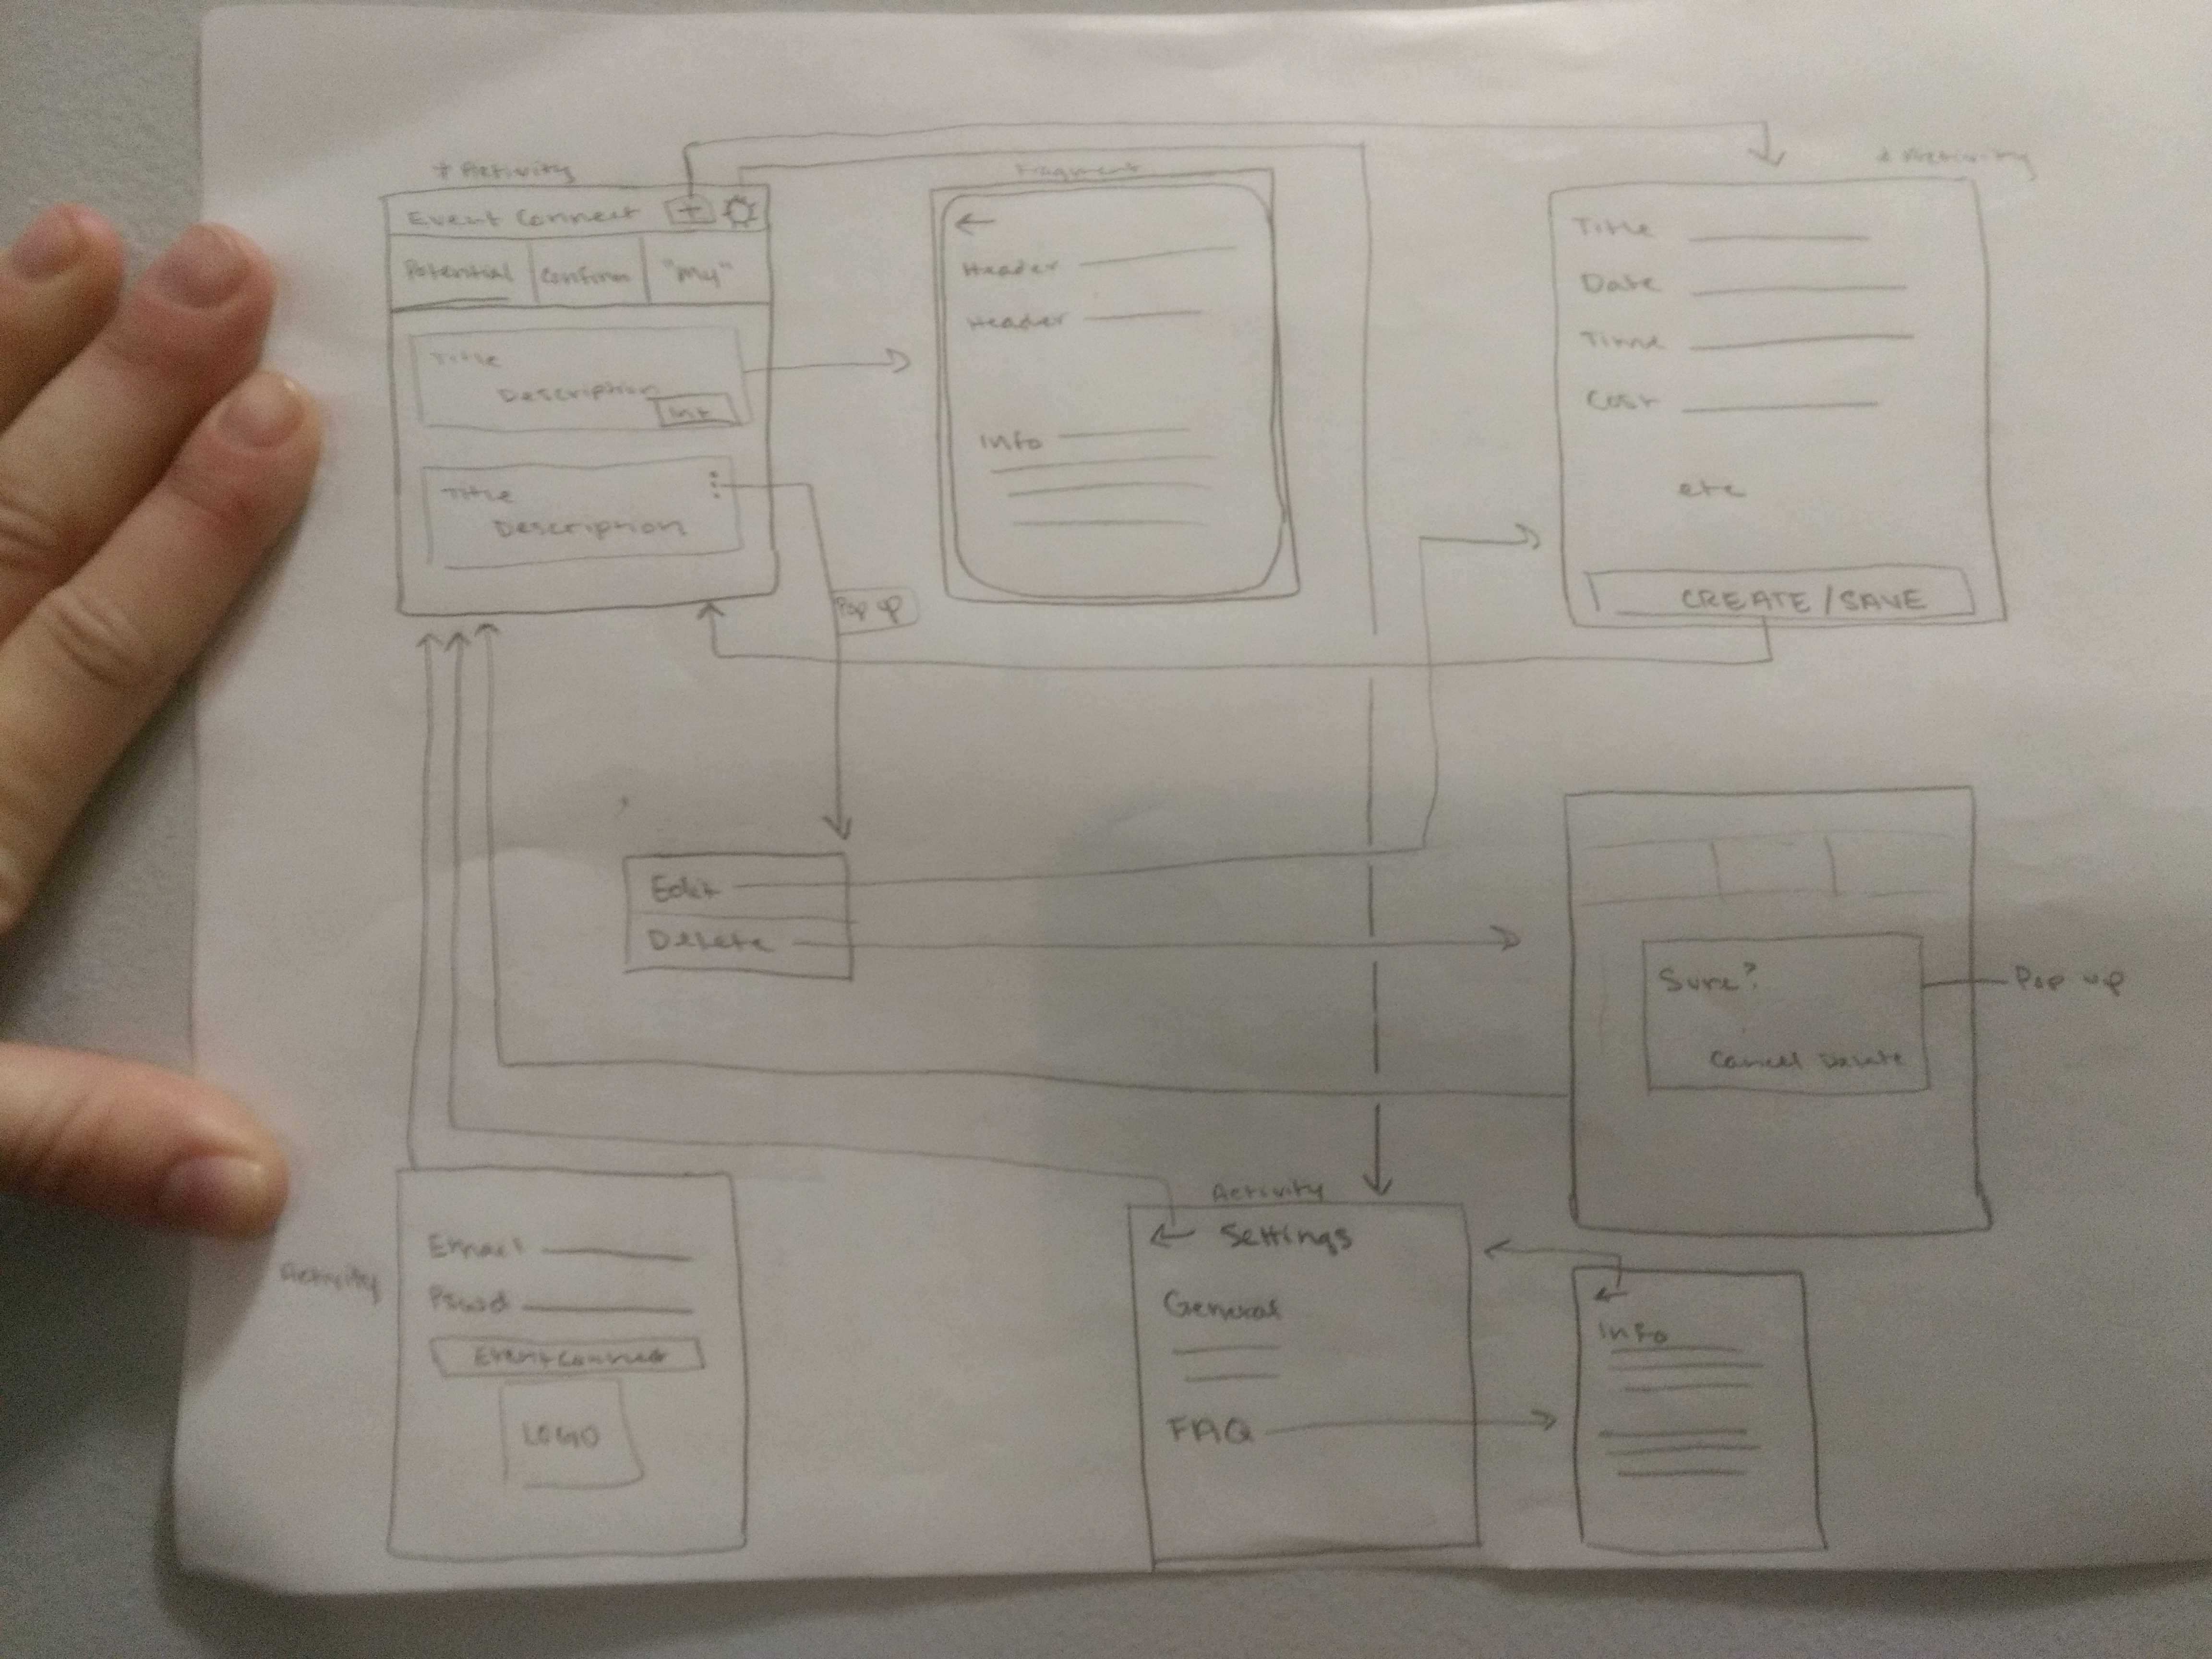 + Activity
Event Connect +
Potential Confirm "My"
Title
Description
Int
Title
Description
Fragment
←
Header
Header
Info
+ Activity
Title
Date
Time
Cost
etc
CREATE / SAVE
Pop up
Edit
Delete
Sure?
Cancel Delete
Pop up
Activity
Email
Pswd
Event Connect
LOGO
Activity
← Settings
General
FAQ
←
Info